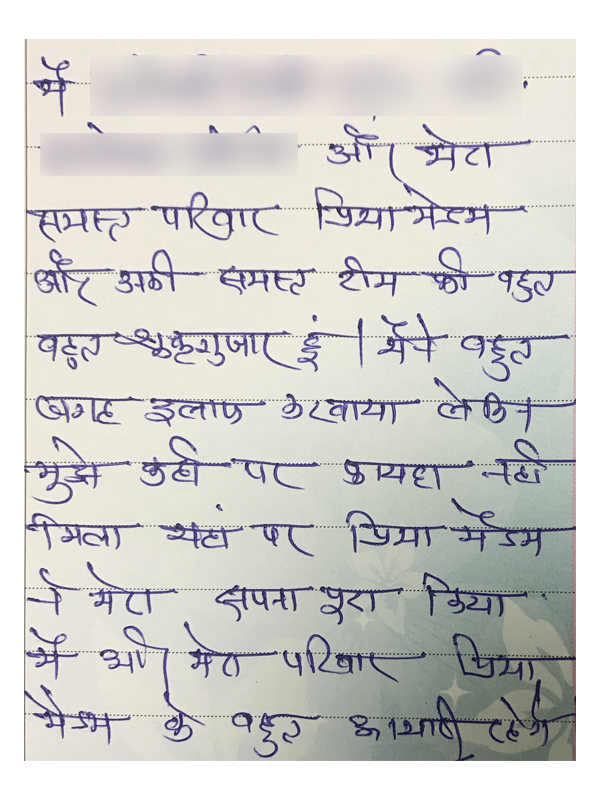 मैं
और मेरा
समस्त परिवार प्रिया मेडम
और उनकी समस्त टीम की बहुत
बहुत शुक्रगुजार हूं । मैंने बहुत
जगह इलाज करवाया लेकिन
मुझे कही पर फायदा नही
मिला यहां पर प्रिया मेडम
ने मेरा सपना पुरा किया
मैं और मेरा परिवार प्रिया
मेडम के बहुत आभारी रहेगे